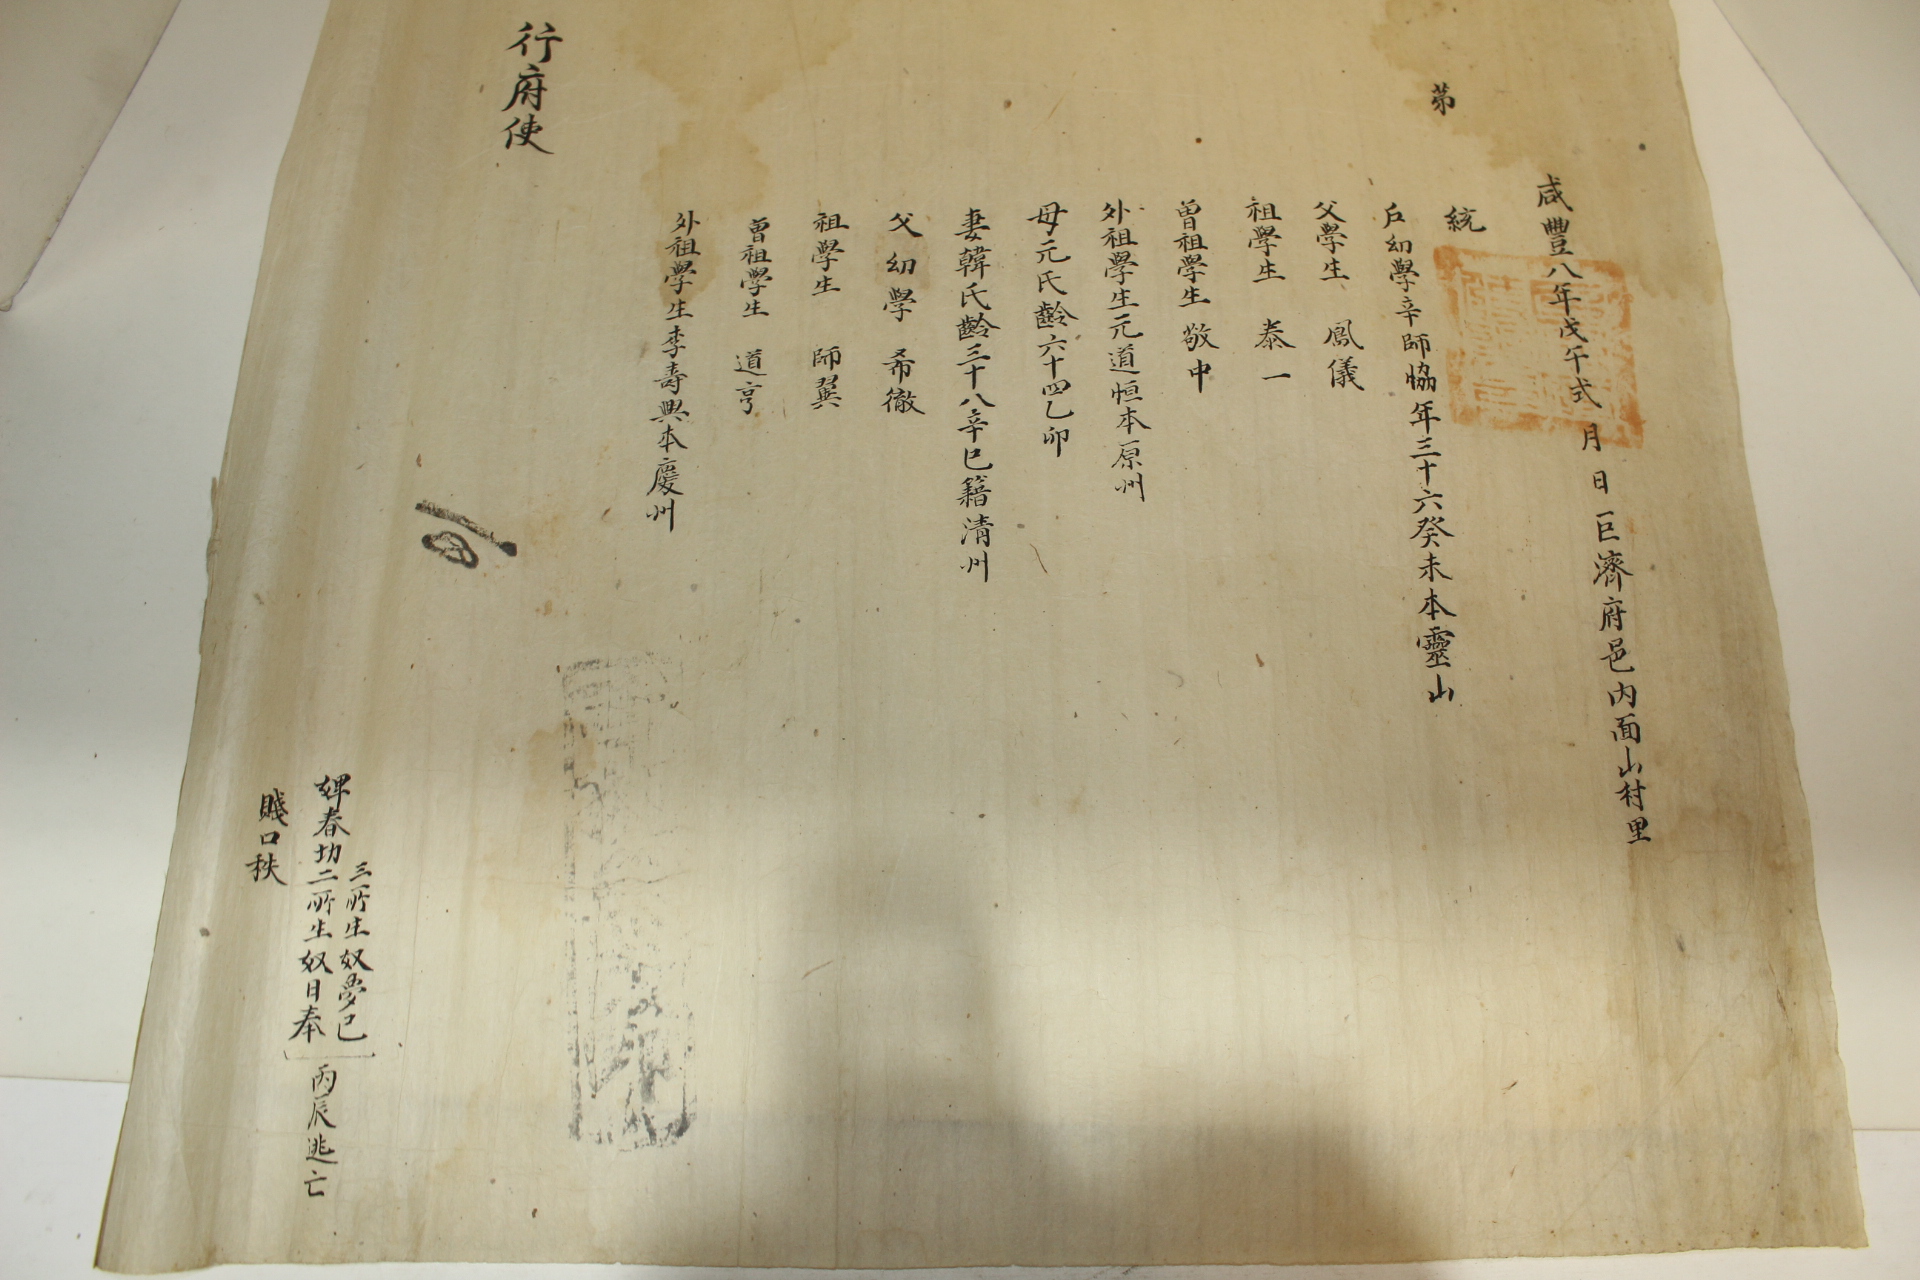 咸豐八年戊午式 月 日巨濟府邑內面山村里
第 統
戶幼學辛師協年三十六癸未本靈山
父學生 鳳儀
祖學生 泰一
曽祖學生 敬中
外祖學生元道恒本原州
母元氏齡六十四乙卯
妻韓氏齡三十八辛巳籍清州
父幼學 希徹
祖學生 師翼
曽祖學生 道亨
外祖學生李壽興本慶州
行府使
三所生奴夢已
婢春切二所生奴日奉
丙辰逃亡
賤口秩